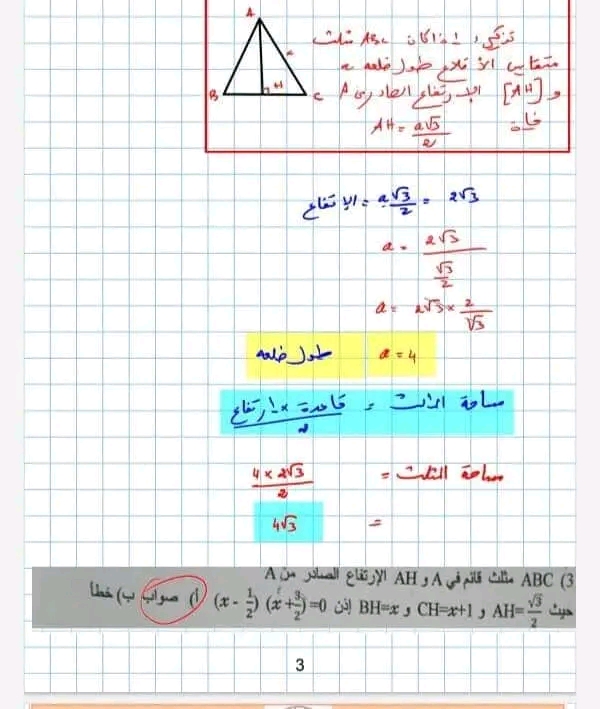 A
تذكير: إذا كان ABC مثلث
متقايس الأضلاع طول ضلعه a
B H C a
و [AH] الإرتفاع الصادر من A
فإن
AH = a√3/2
الإرتفاع = a√3/2 = 2√3
a = 2√3/(√3/2)
a = 2√3 × 2/√3
طول ضلعه a = 4
مساحة المثلث = قاعدة × ارتفاع/2
مساحة المثلث = 4 × 2√3/2
= 4√3
3) ABC مثلث قائم في A و AH الإرتفاع الصادر من A
حيث AH=√3/2 و CH=x+1 و BH=x إذن (x - 1/2) (x + 3/2) =0 أ) صواب ب) خطأ
3